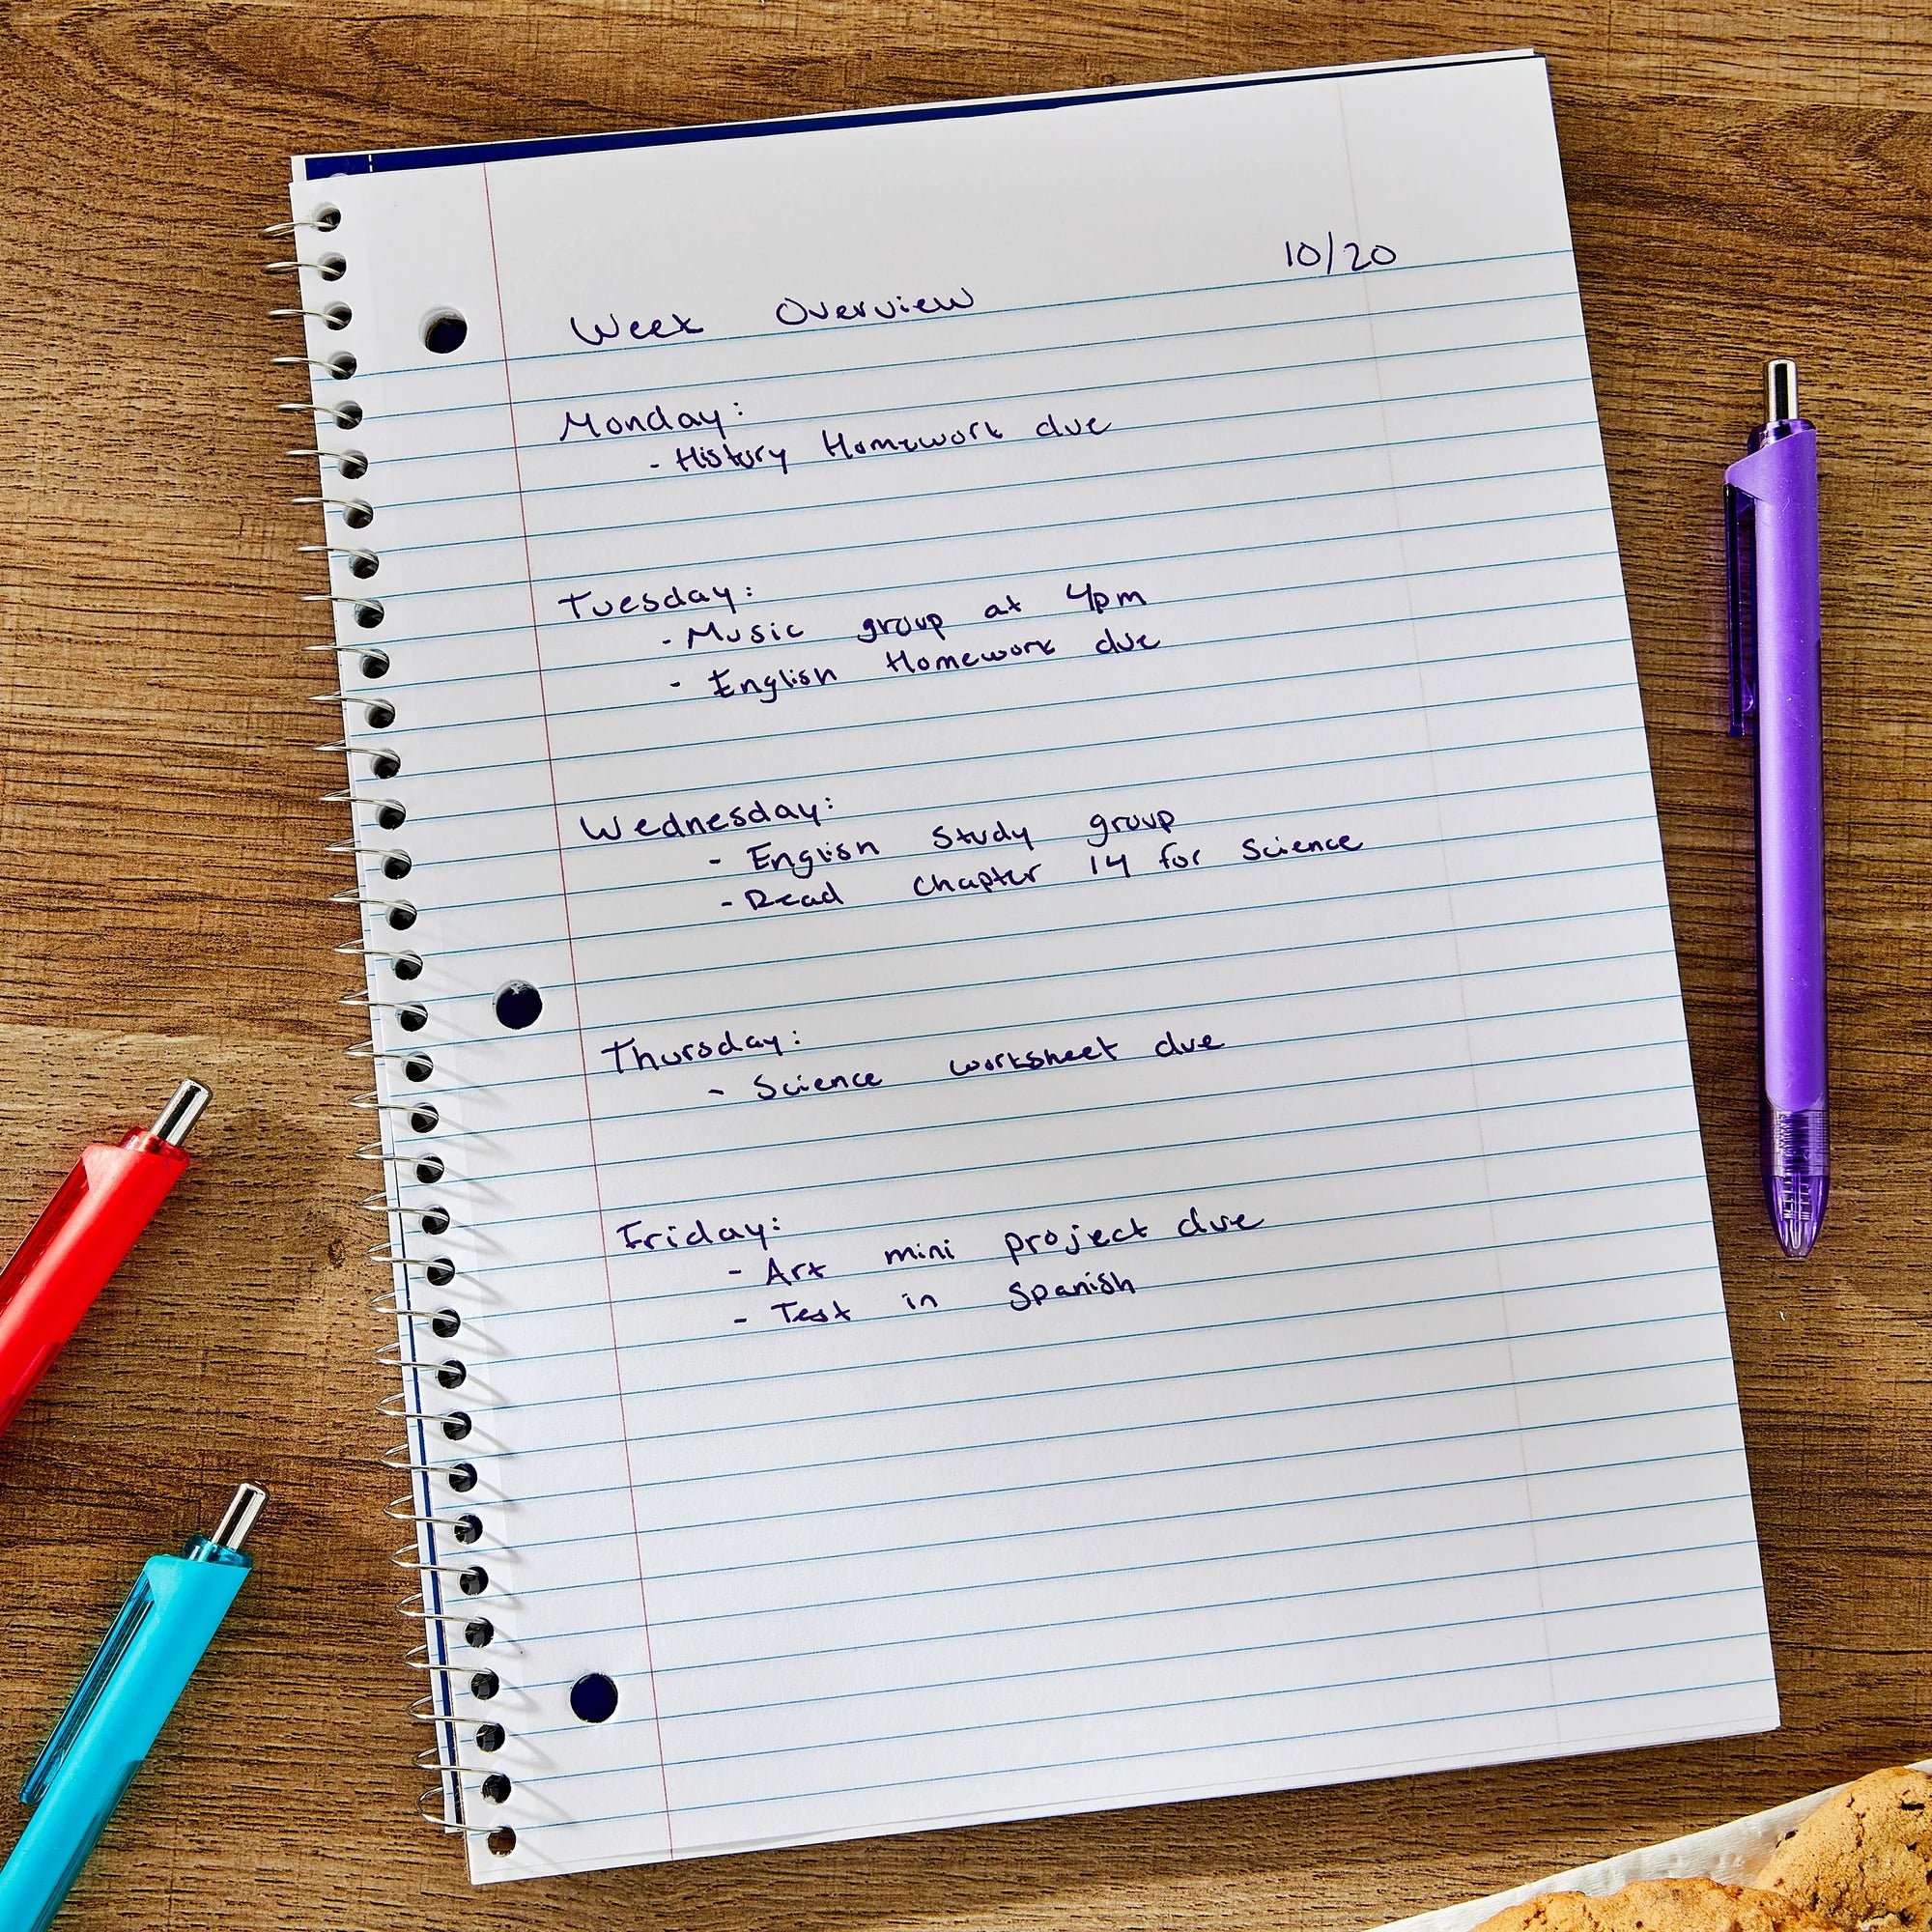 10/20
Week Overview
Monday:
- History Homework due
Tuesday:
- Music group at 4pm
- English Homework due
Wednesday:
- English Study group
- Read Chapter 14 for Science
Thursday:
- Science worksheet due
Friday:
- Art mini project due
- Test in Spanish